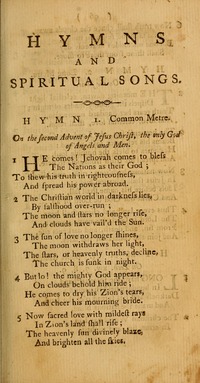 HYMNS
AND
SPIRITUAL SONGS.
HYMN 1. Common Metre.
On the second Advent of Jesus Christ, the only God
of Angels and Men.
1 HE comes! Jehovah comes to bless
The Nations as their God;
To shew his truth in righteousness,
And spread his power abroad.
2 The Christian world in darkness lies,
By falshood over-run;
The moon and stars no longer rise,
And clouds have vail'd the Sun.
3 The sun of love no longer shines,
The moon withdraws her light,
The stars, or heavenly truths, decline,
The church is sunk in night.
4 But lo! the mighty God appears,
On clouds behold him ride;
He comes to dry his Zion's tears,
And cheer his mourning bride.
5 Now sacred love with mildest rays
In Zion's land shall rise;
The heavenly sun divinely blaze,
And brighten all the skies.